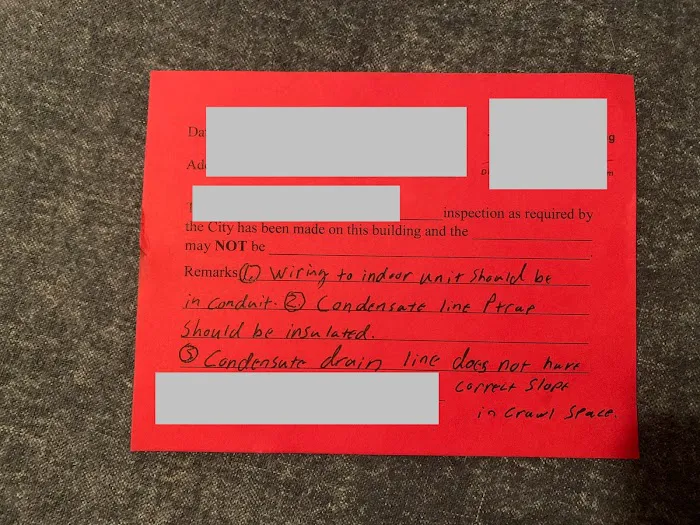 Da
g
Ad
m
inspection as required by
the City has been made on this building and the
may NOT be
Remarks ①. Wiring to indoor unit should be
in conduit. ②. Condensate line Ptrap
Should be insulated.
③ Condensate drain line does not have
correct slope
in crawl space.